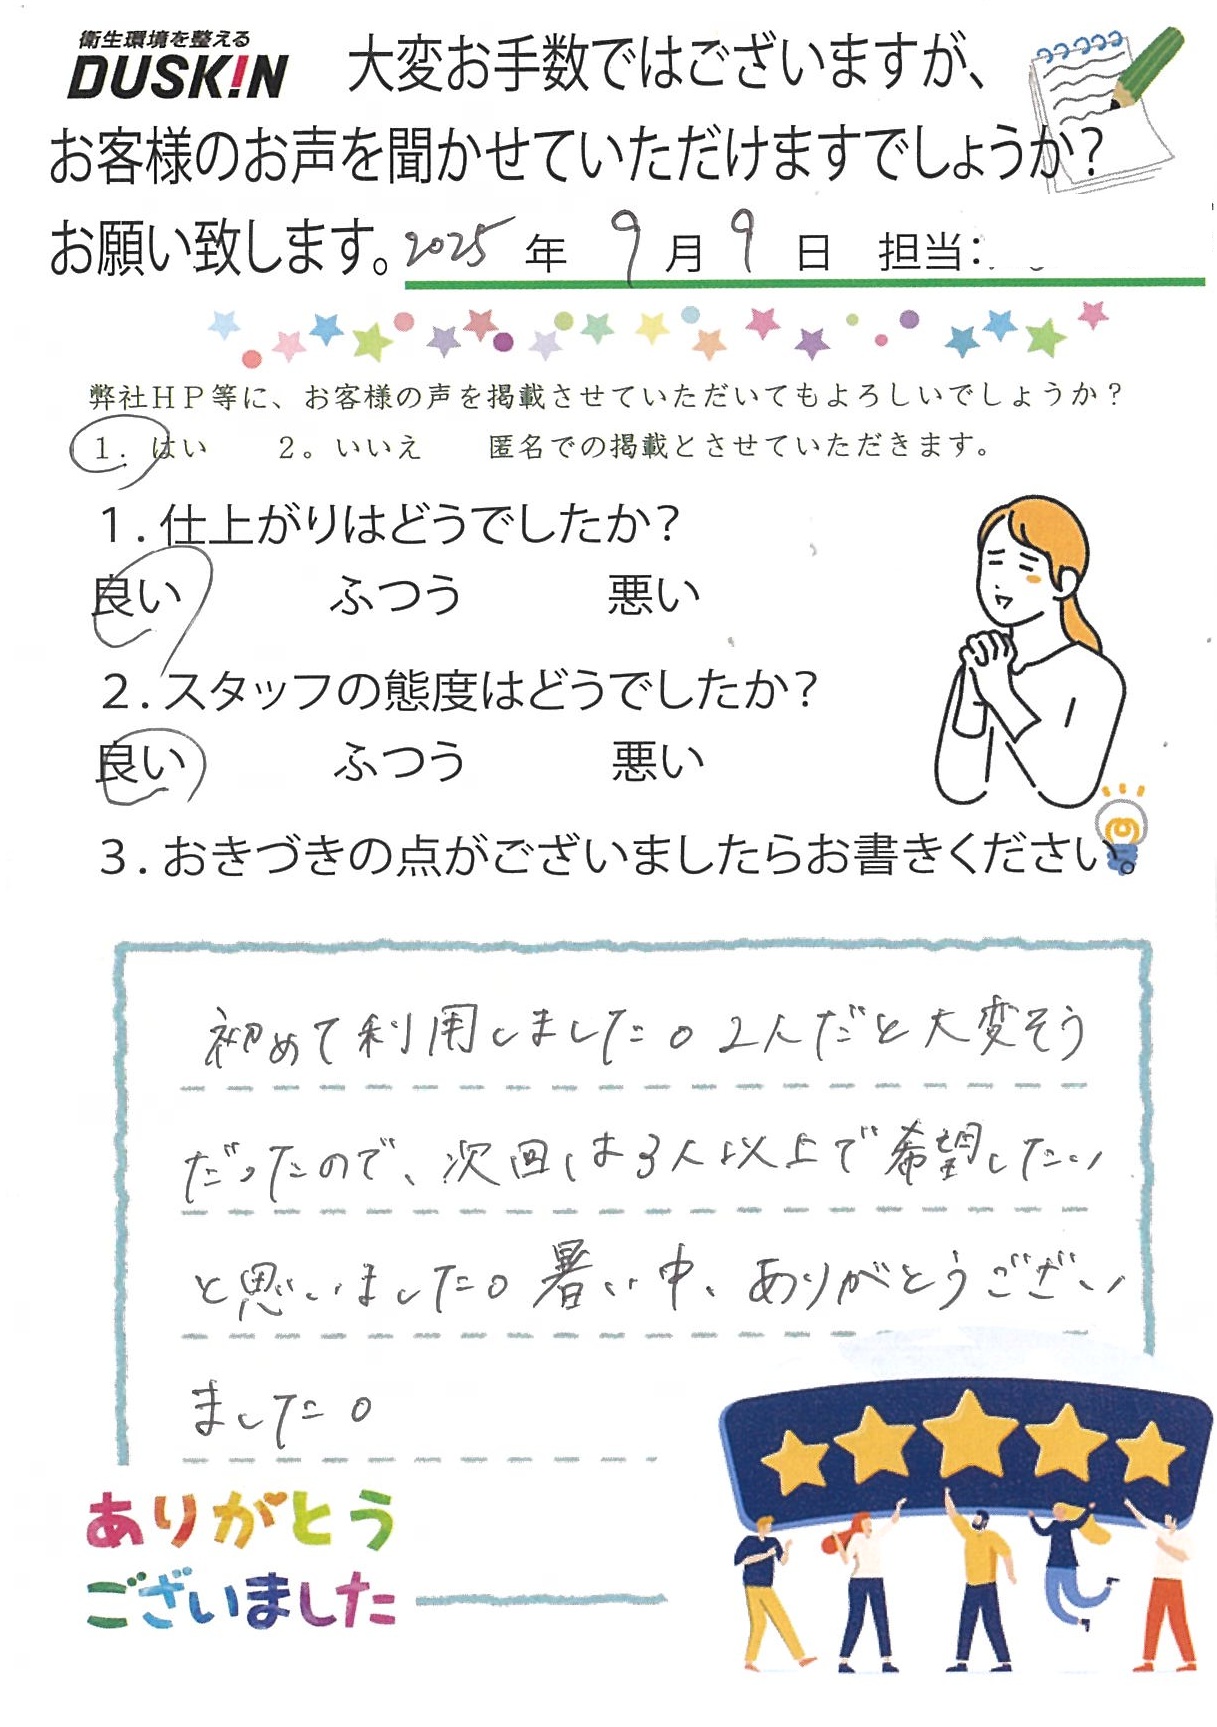 衛生環境を整える
DUSKIN 大変お手数ではございますが、
お客様のお声を聞かせていただけますでしょうか？
お願い致します。2025 年 9 月 9 日 担当：
弊社ＨＰ等に、お客様の声を掲載させていただいてもよろしいでしょうか？
１．はい ２。いいえ 匿名での掲載とさせていただきます。
１．仕上がりはどうでしたか？
良い ふつう 悪い
２．スタッフの態度はどうでしたか？
良い ふつう 悪い
３．おきづきの点がございましたらお書きください。
初めて利用しました。2人だと大変そう
だったので、次回は3人以上で希望したい
と思いました。暑い中、ありがとうござい
ました。
ありがとう
ございました